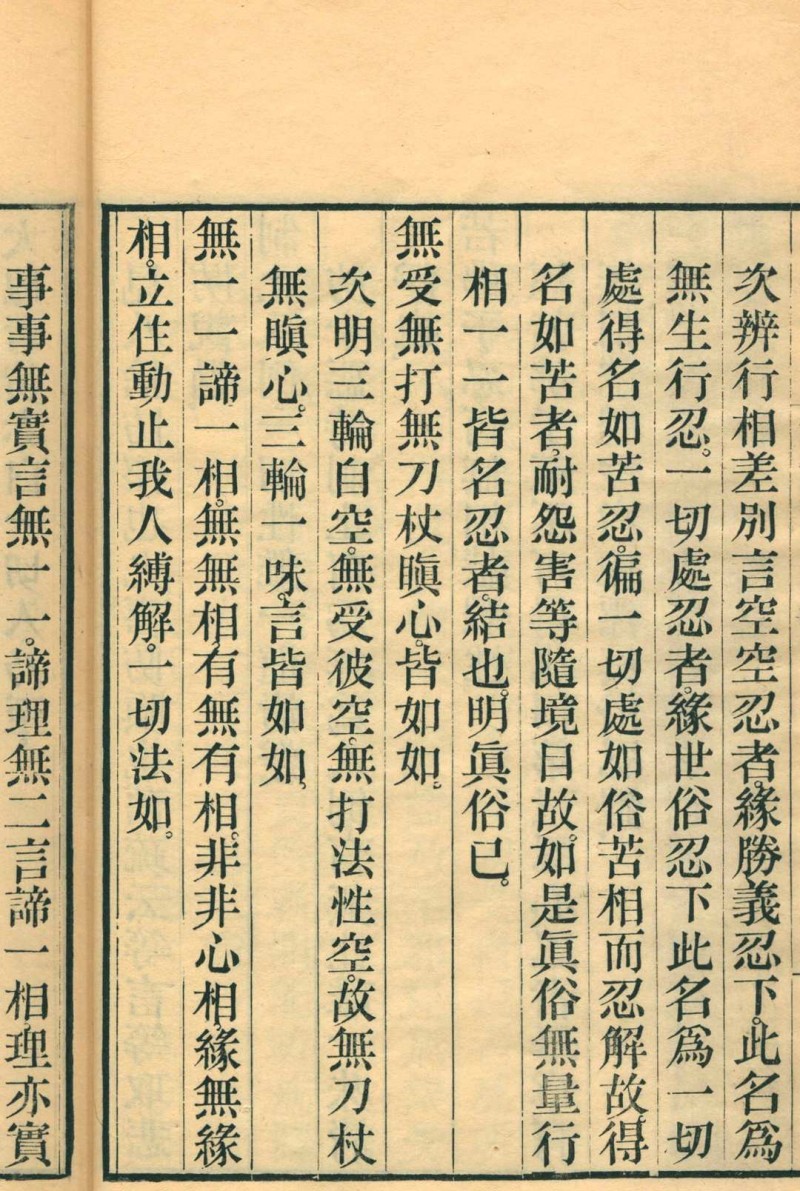 次辨行相差別言空空忍者緣勝義忍下。此名爲
無生行忍。一切處忍者。緣世俗忍下此名爲一切
處得名如苦忍。徧一切處如俗苦相而忍解故。得
名如苦者。耐怨害等隨境日故。如是眞俗無量行
相一一皆名忍者。結也。明眞俗已。
無受無打無刀杖瞋心。皆如如。
次明三輪自空。無受彼空。無打法性空。故無刀杖
無瞋心。三輪一味。言皆如如。
無一一諦一相。無無相。有無有相。非非心相。緣無緣
相。立住動止我人縛解。一切法如。
事事無實言無一一。諦理無二言諦一相。理亦實